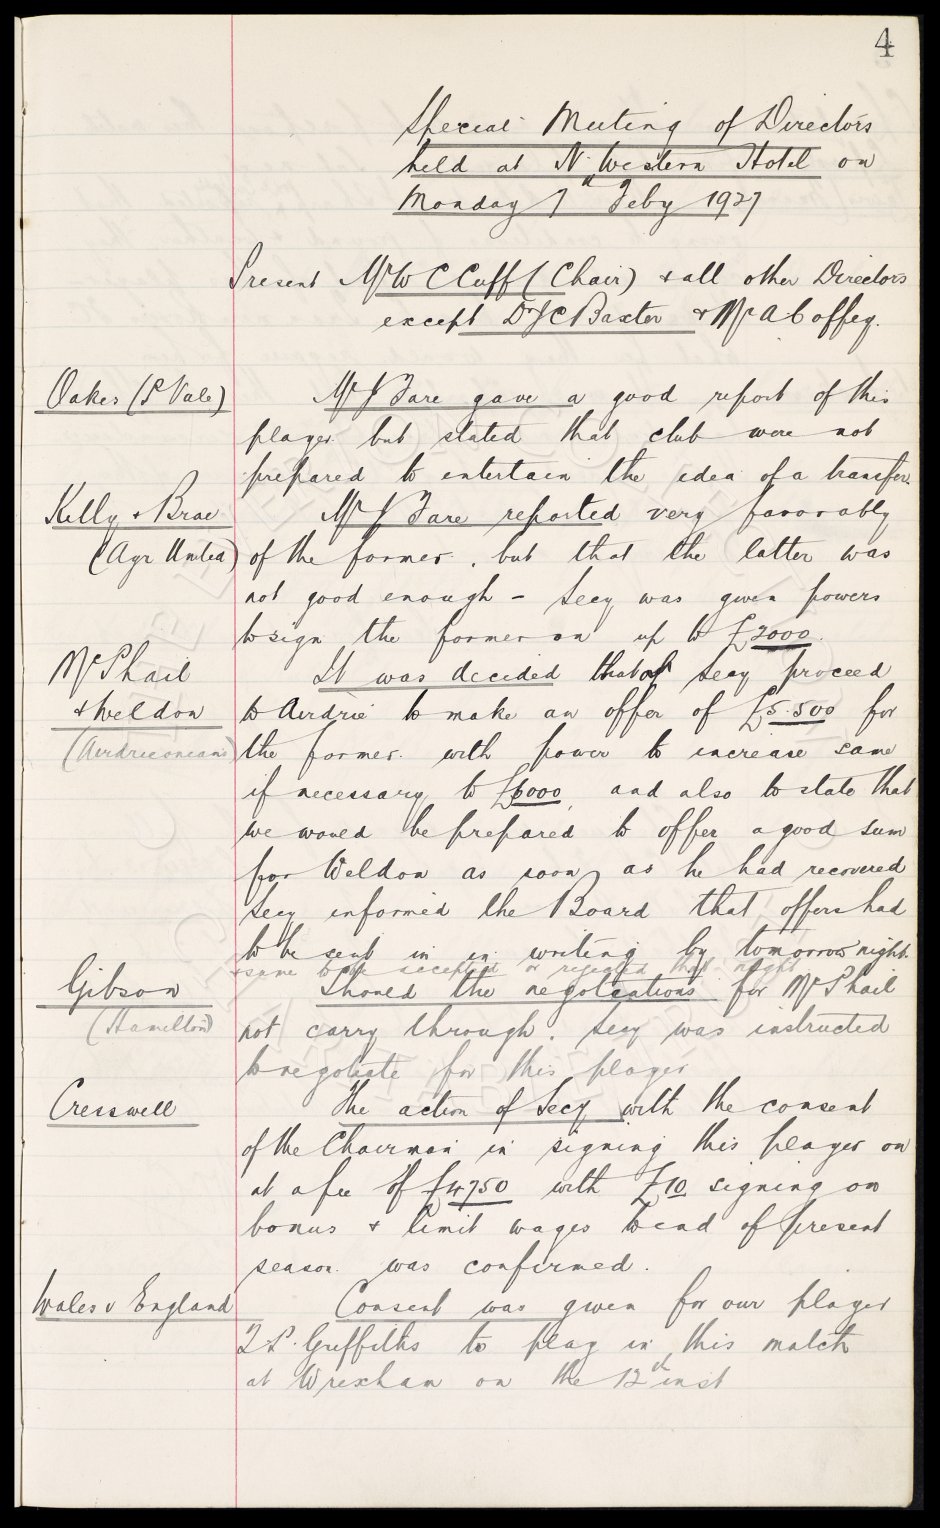 4
Special Meeting of Directors
held at N. Western Hotel on
Monday 7th Feby 1927
Present Mr W C Cuff (Chair) & all other Directors
except Dr J C Baxter & Mr A Coffey.
Oakes (P Vale)
Mr J Fare gave a good report of this
player but stated that club were not
prepared to entertain the idea of a transfer.
Kelly & Brae
(Ayr United)
Mr J Fare reported very favorably
of the former, but that the latter was
not good enough - Secy was given powers
to sign the former on up to £2000.
McPhail
& Weldon
(Airdrieonians)
It was decided that Secy proceed
to Airdrie to make an offer of £5.500 for
the former with power to increase same
if necessary to £6000, and also to state that
we would be prepared to offer a good sum
for Weldon as soon as he had recovered
Secy informed the Board that offers had
to be sent in in writing by tomorrow night.
& same to be accepted or rejected that night
Gibson
(Hamilton)
Should the negotiations for McPhail
not carry through, Secy was instructed
to negotiate for this player
Cresswell
The action of Secy with the consent
of the Chairman in signing this player on
at a fee of £4750 with £10 signing on
bonus & limit wages to end of present
season was confirmed.
Wales v England
Consent was given for our player
T P. Griffiths to play in this match
at Wrexham on the 12th inst